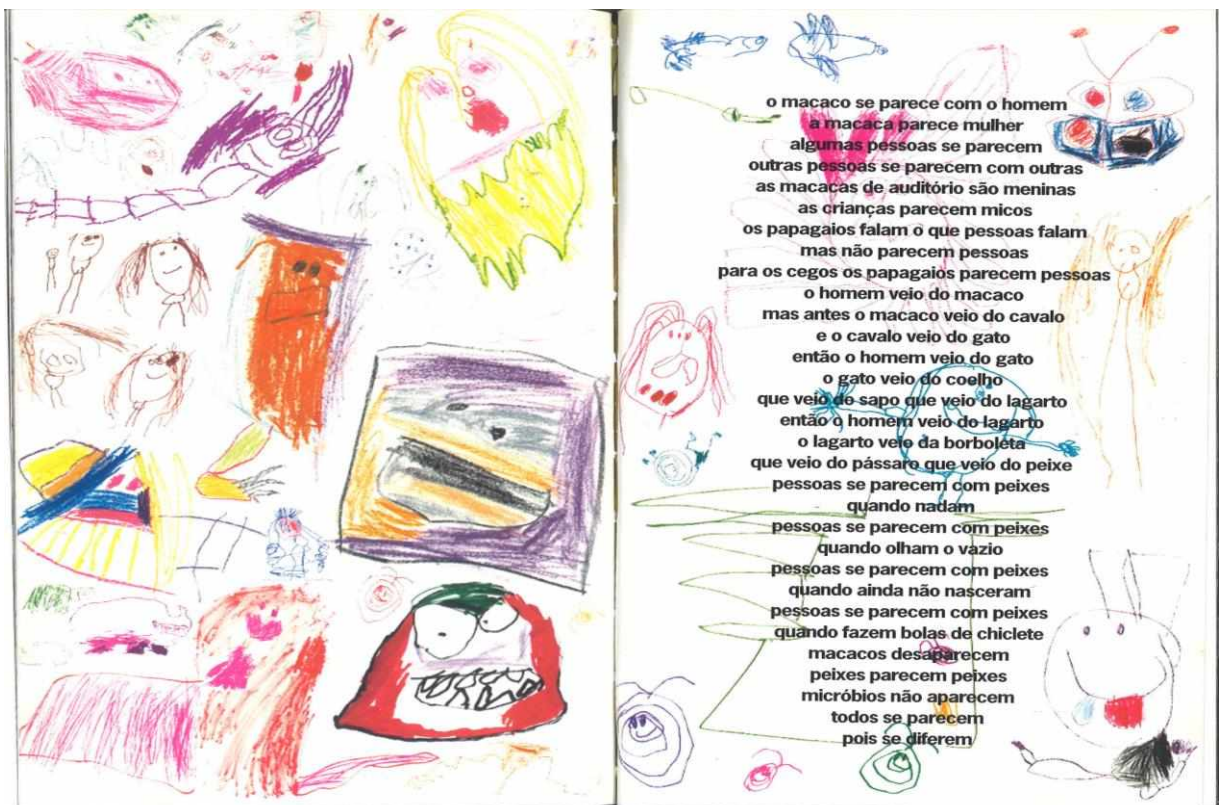 o macaco se parece com o homem
a macaca parece mulher
algumas pessoas se parecem
outras pessoas se parecem com outras
as macacas de auditório são meninas
as crianças parecem micos
os papagaios falam o que pessoas falam
mas não parecem pessoas
para os cegos os papagaios parecem pessoas
o homem veio do macaco
mas antes o macaco veio do cavalo
e o cavalo veio do gato
então o homem veio do gato
o gato veio do coelho
que veio do sapo que veio do lagarto
então o homem veio do lagarto
o lagarto veio da borboleta
que veio do pássaro que veio do peixe
pessoas se parecem com peixes
quando nadam
pessoas se parecem com peixes
quando olham o vazio
pessoas se parecem com peixes
quando ainda não nasceram
pessoas se parecem com peixes
quando fazem bolas de chiclete
macacos desaparecem
peixes parecem peixes
micróbios não aparecem
todos se parecem
pois se diferem